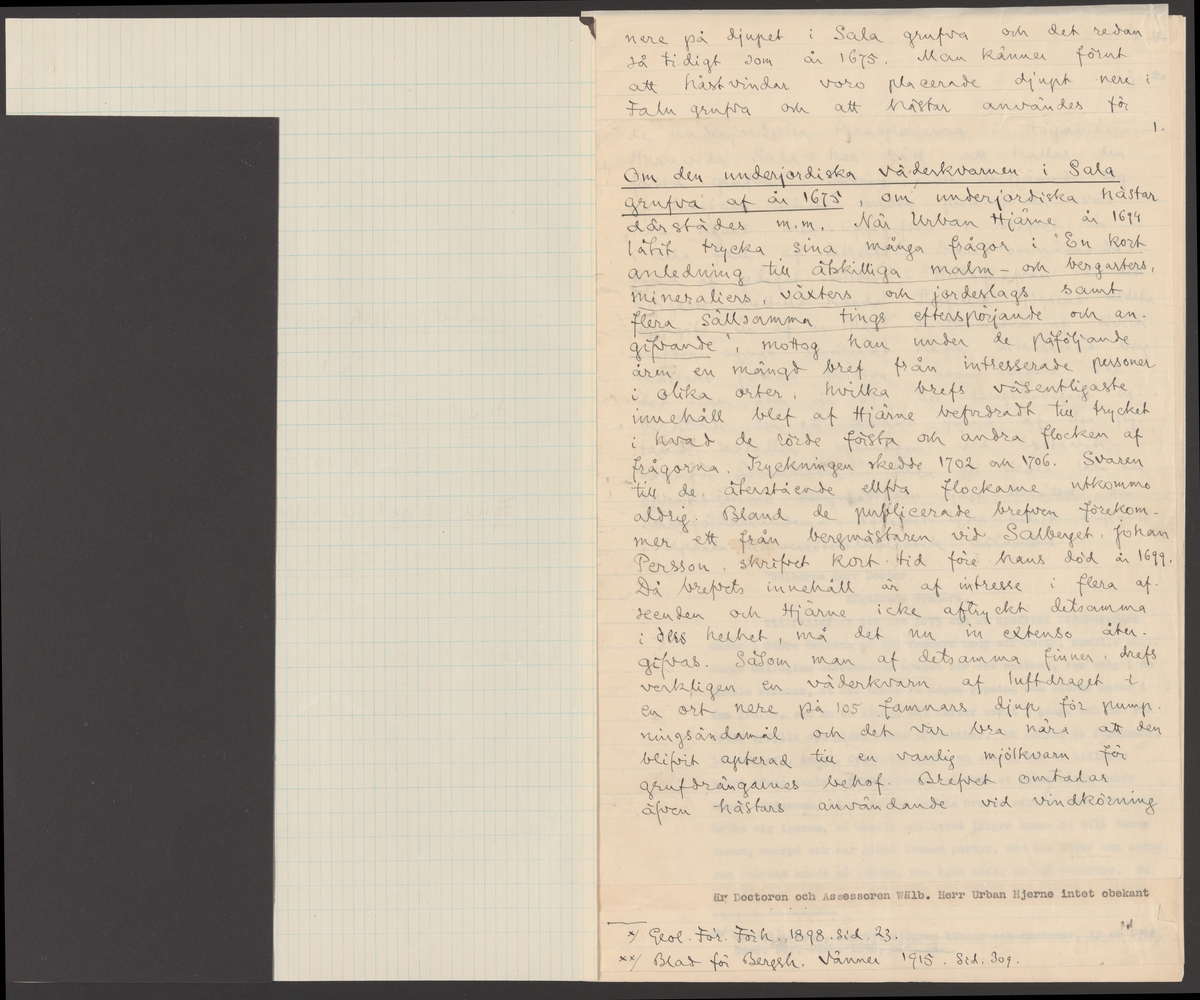 nere på djupet i Sala grufva och det redan
så tidigt som år 1675. Man känner förut
att hästvindar voro placerade djupt nere i
Falu grufva och att hästar användes för
1.
Om den underjordiska väderkvarnen i Sala
grufva af år 1675, om underjordiska hästar
därstädes m.m. När Urban Hjärne år 1694
låtit trycka sina många frågor i "En kort
anledning till åtskilliga malm- och bergarters,
mineraliers, växters och jordeslags samt
flera sällsamma tings efterspörjande och an-
gifvande", mottog han under de påföljande
åren en mängd bref från intresserade personer
i olika orter, hvilka brefs väsentligaste
innehåll blef af Hjärne befordradt till trycket
i hvad de rörde första och andra flocken af
frågorna. Tryckningen skedde 1702 och 1706. Svaren
till de återstående ellfva flockarne utkommo
aldrig. Bland de publicerade brefven förekom-
mer ett från bergmästaren vid Salberget, Johan
Persson, skrifvet kort tid före hans död år 1699.
Då brefvets innehåll är af intresse i flera af-
seenden och Hjärne icke aftryckt detsamma
i dess helhet, må det nu in extenso åter-
gifvas. Såsom man af detsamma finner, drefs
verkligen en väderkvarn af luftdraget i
en ort nere på 105 famnars djup för pump-
ningsändamål och det var bra nära att den
blifvit apterad till en vanlig mjölkvarn för
grufdrängarnes behof. Brefvet omtalar
äfven hästars användande vid vindkörning
Är Doctoren och Assessoren Wälb. Herr Urban Hjerne intet obekant
x/ Geol. För. Förh. 1898. Sid. 23.
xx/ Blad för Bergsh. Vänner 1915. Sid. 309.